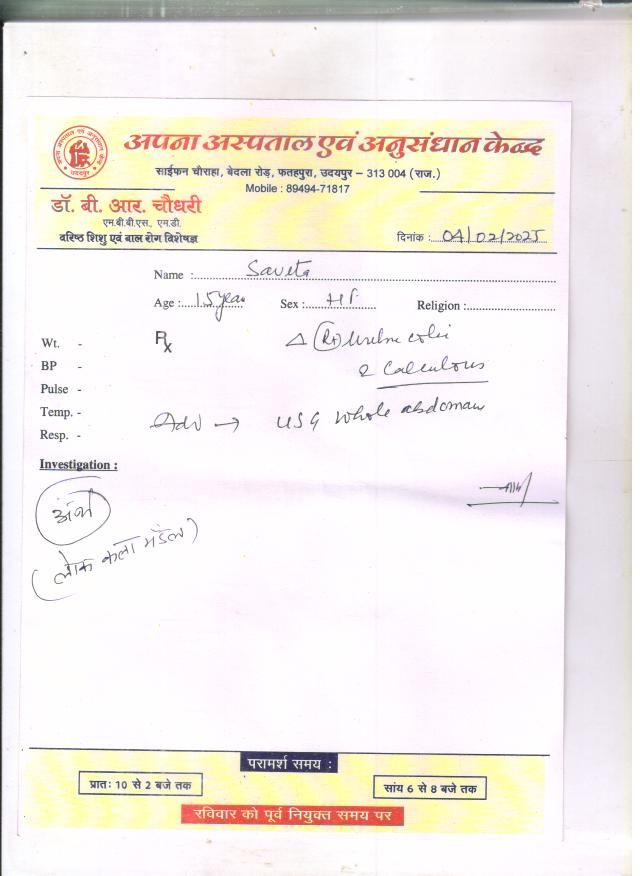 अपना अस्पताल एवं अनुसंधान केन्द्र
साईफन चौराहा, बेदला रोड़, फतहपुरा, उदयपुर – 313 004 (राज.)
Mobile : 89494-71817
डॉ. बी. आर. चौधरी
एम.बी.बी.एस., एम.डी.
वरिष्ठ शिशु एवं बाल रोग विशेषज्ञ
दिनांक : 04/02/2025
Name : Saveta
Age : 15 year Sex : Religion :
Rx
Wt. -
BP -
Pulse -
Temp. -
Resp. -
Δ (Rt)
calculous
Adv → USG whole abdomen
Investigation :
(लोक कला मंडल)
परामर्श समय :
प्रातः 10 से 2 बजे तक
सांय 6 से 8 बजे तक
रविवार को पूर्व नियुक्त समय पर